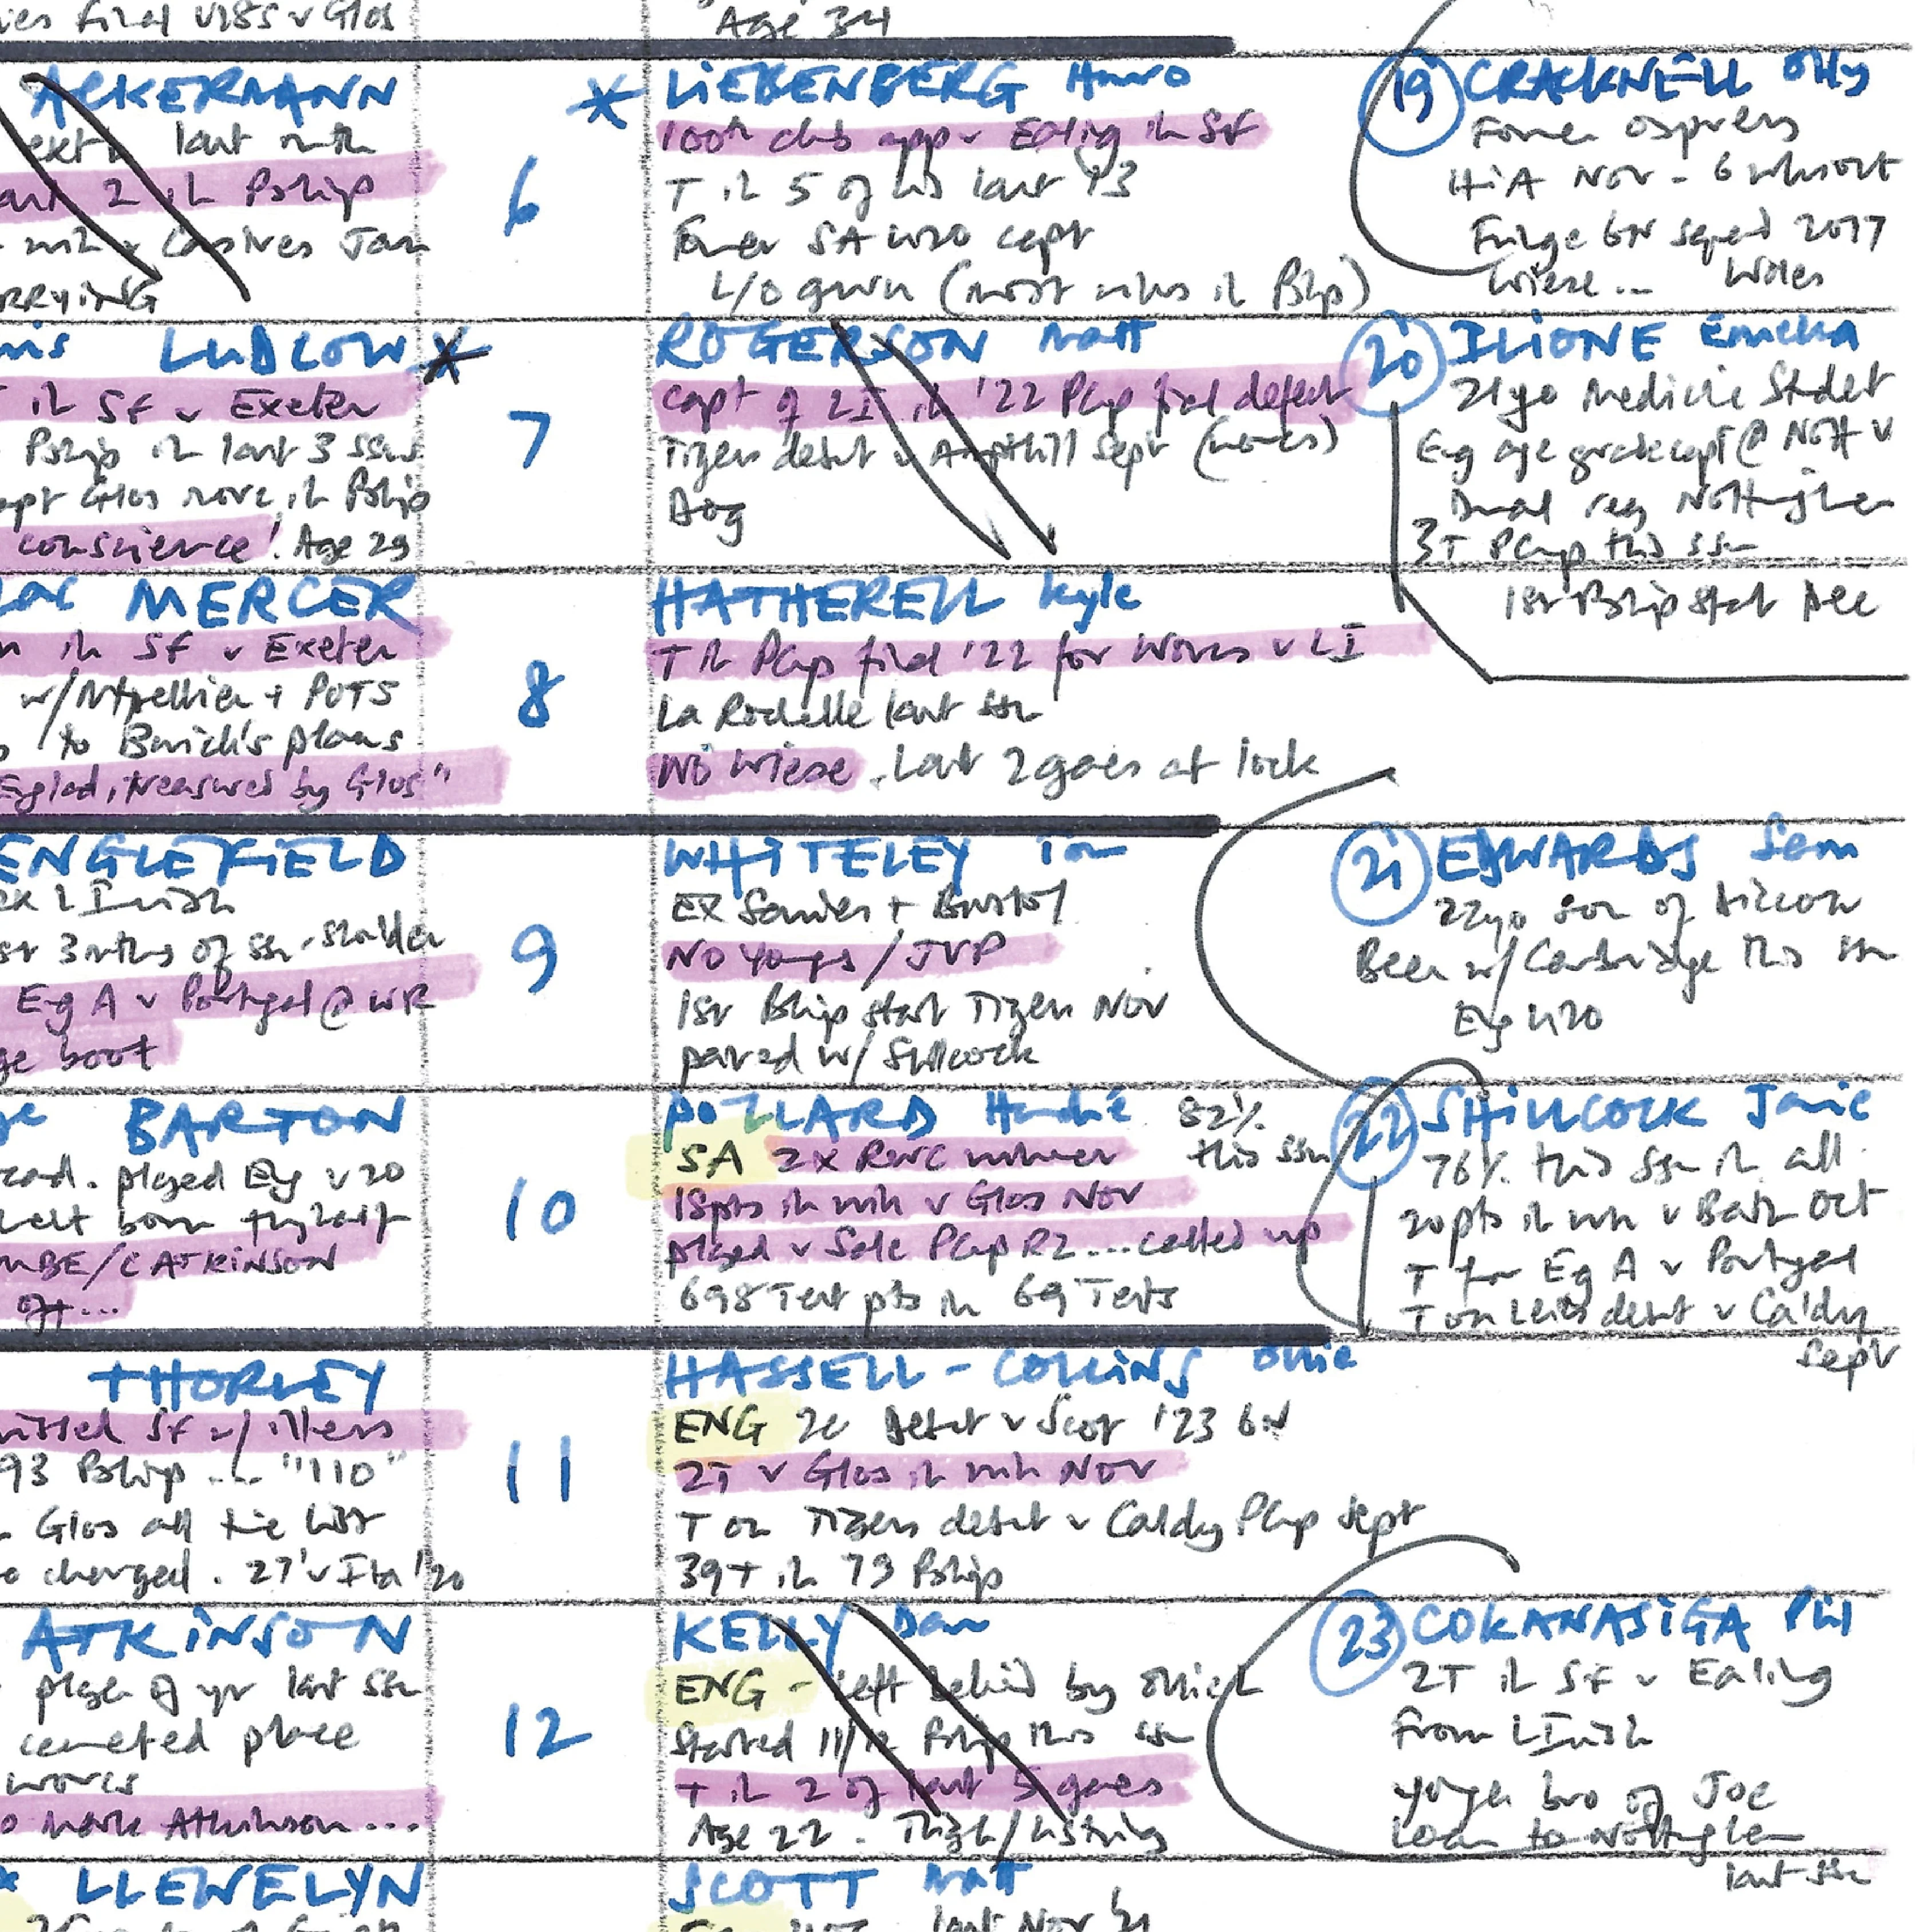 final U18s v Glos
Age 34
ACKERMANN
last mth
2 in Pship
v Castres Jan
6
* LIEBENBERG Hanro
100th club app v Ealing in SF
T in 5 of his last 13
Former SA U20 capt
L/O guru (most wins in Pship)
19 CRACKNELL Olly
Former Ospreys
HIA Nov - 6 wks out
Fringe 6N squad 2017
Wiese... Wales
LUDLOW *
in SF v Exeter
Pship in last 3 ssns
Glos more in Pship
conscience! Age 29
7
ROGERSON Matt
Capt of LI in '22 PCup final defeat
Tigers debut v Ampthill Sept (
Dog
20 ILIONE Emeka
21yo Medicine Student
Eng age grade capt @ Nott U
Dual reg Nottingham
3T PCup this ssn
1st Pship start Dec
MERCER
in SF v Exeter
w/Mtpellier + POTS
to Borthwick's plans
England, treasured by Glos"
8
HATHERELL Kyle
T in PCup final '22 for Worcs v LI
La Rochelle last ssn
No Wiese. Last 2 games at lock
ENGLEFIELD
ex L Irish
3 mths of ssn - shoulder
Eng A v Portugal @
boot
9
WHITELEY Tom
Ex Sarries + Bristol
No Youngs / JVP
1st Pship start Tigers Nov
paired w/ Shillcock
21 EDWARDS Sam
22yo son of
Been w/ Cambridge this ssn
Eng U20
BARTON
played Eng U20
born
/C ATKINSON
off...
10
POLLARD Handré 82%
SA 2x RWC winner this ssn
18pts in win v Glos Nov
played v Sale PCup R2 ... called up
698 Test pts in 69 Tests
22 SHILLCOCK Jamie
76% this ssn in all.
20pts in win v Bath Oct
T for Eng A v Portugal
T on Leics debut v Caldy
Sept
THORLEY
missed SF w/ illness
93 Pship ... "110"
Glos all time list
charged. 27' v Ita '20
11
HASSELL-COLLINS Ollie
ENG 2c Debut v Scot '23 6N
2T v Glos in win Nov
T on Tigers debut v Caldy PCup Sept
39T in 73 Pship
ATKINSON
player of yr last ssn
cemented place
worcs
Mark Atkinson...
12
KELLY Dan
ENG - left behind by
Started 11/12 Pship this ssn
T in 2 of last 5 games
Age 22. Thigh/hstring
23 COKANASIGA Phil
2T in SF v Ealing
From L Irish
Younger bro of Joe
Loan to Nottingham
last ssn
LLEWELYN
SCOTT Matt
last Nov '21